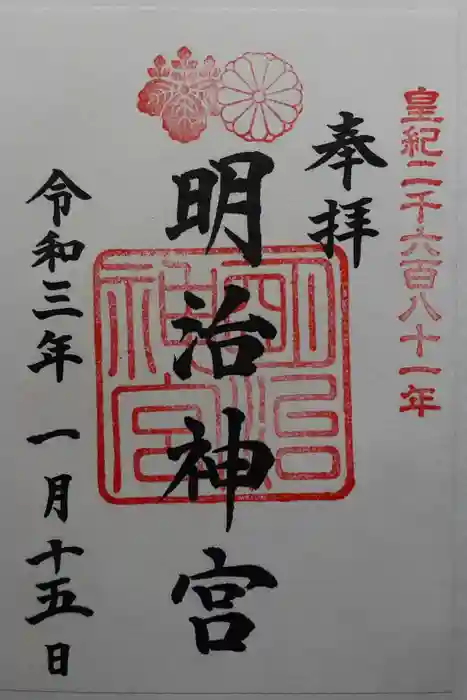 皇紀二千六百八十一年
奉拝
明治神宮
明治神宮
令和三年一月十五日